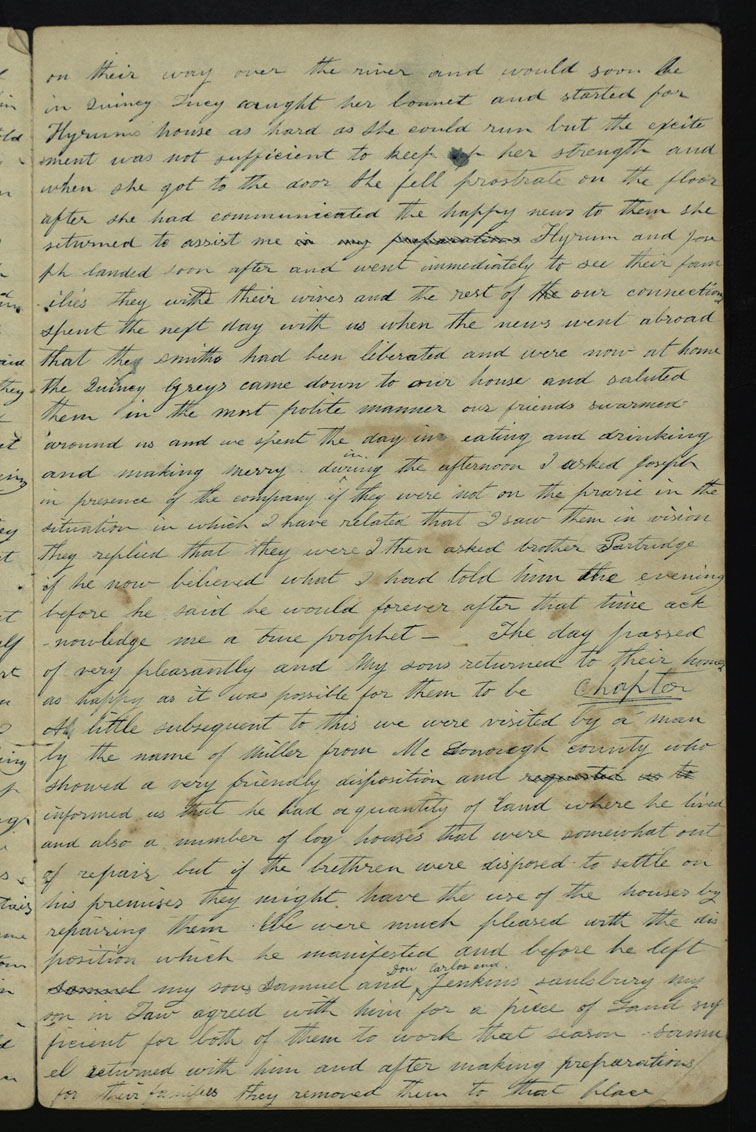 on their way over the river and would soon be
in Quincy Lucy caught her bonnet and started for
Hyrums house as hard as she could run but the excite
ment was not sufficient to keep up her strength and
when she got to the door she fell prostrate on the floor
after she had communicated the happy news to them she
returned to assist me in my preparations Hyrum and Jose
ph landed soon after and went immediately to see their fam
ilies they with their wives and the rest of the our connections
spent the next day with us when the news went abroad
that the smiths had been liberated and were now at home
the Quincy Greys came down to our house and saluted
them in the most polite manner our friends swarmed
around us and we spent the day in eating and drinking
and making merry during in the afternoon I asked Joseph
in presence of the company if they were not on the prarie in the
situation in which I have related that I saw them in vision
they replied that they were I then asked brother Partridge
if he now believed what I had told him the evening
before he said he would forever after that time ack
nowledge me a true prophet — The day passed
of very pleasantly and My sons returned to their homes
as happy as it was possible for them to be Chapter
A little subsequent to this we were visited by a man
by the name of Miller from Mc Donough county who
showed a very friendly disposition and requested us to
informed us that he had a quantity of land where he lived
and also a number of log houses that were somewhat out
of repair but if the brethren were disposed to settle on
his premises they might have the use of the houses by
repairing them We were much pleased with the dis
position which he manifested and before he left
Don Carlos and
Samuel my sons Samuel and Jenkins saulsbury my
son in Law agreed with him for a piece of Land suf
ficient for both of them to work that season Samu
el returned with him and after making preparations
for their families they removed them to that place